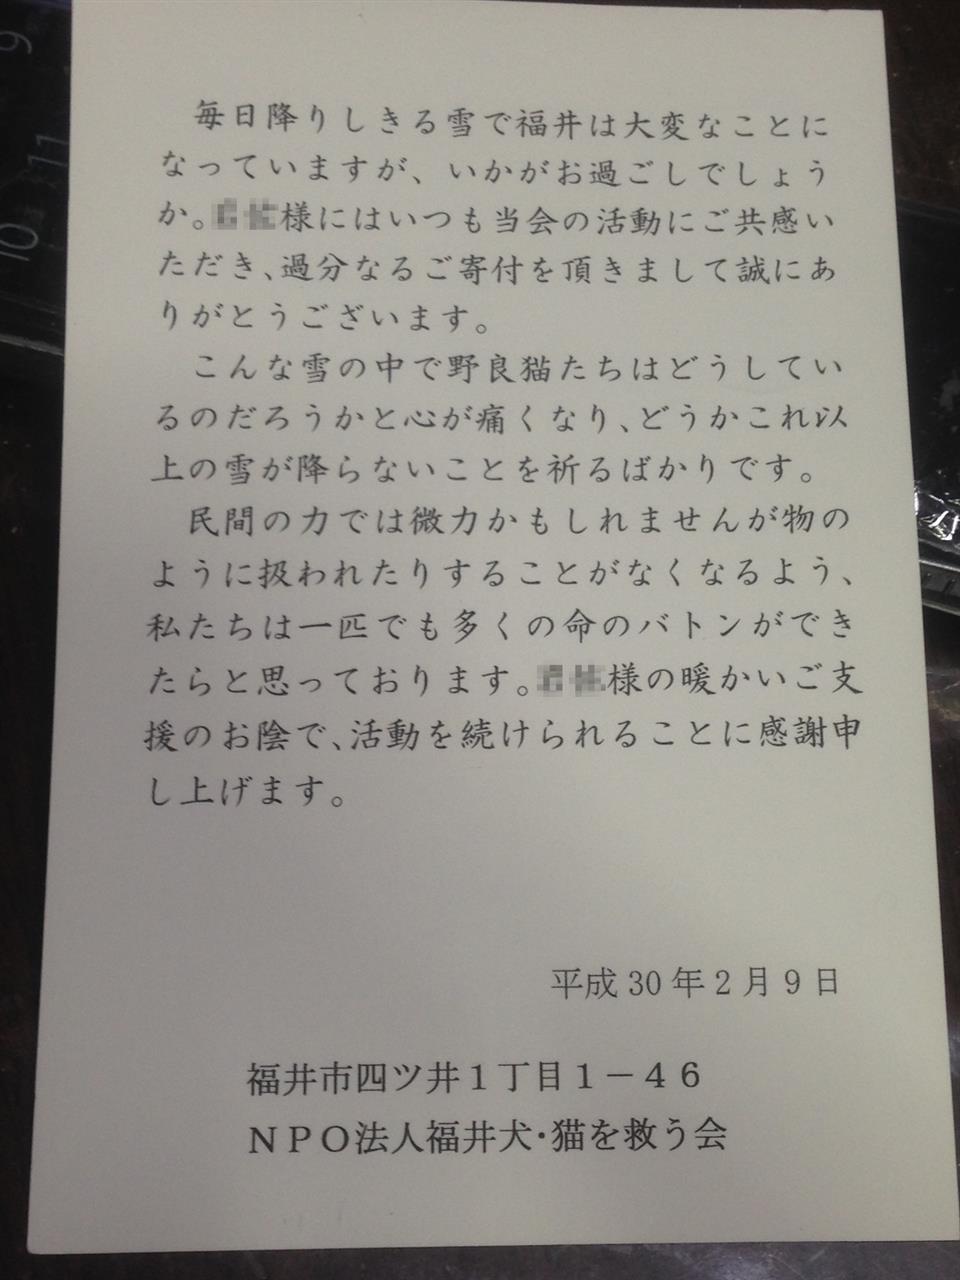 毎日降りしきる雪で福井は大変なことに
なっていますが、いかがお過ごしでしょう
か。様にはいつも当会の活動にご共感い
ただき、過分なるご寄付を頂きまして誠にあ
りがとうございます。
こんな雪の中で野良猫たちはどうしてい
るのだろうかと心が痛くなり、どうかこれ以
上の雪が降らないことを祈るばかりです。
民間の力では微力かもしれませんが物の
ように扱われたりすることがなくなるよう、
私たちは一匹でも多くの命のバトンができ
たらと思っております。様の暖かいご支
援のお陰で、活動を続けられることに感謝申
し上げます。
平成30年2月9日
福井市四ツ井1丁目1－46
ＮＰＯ法人福井犬・猫を救う会
9
11
10